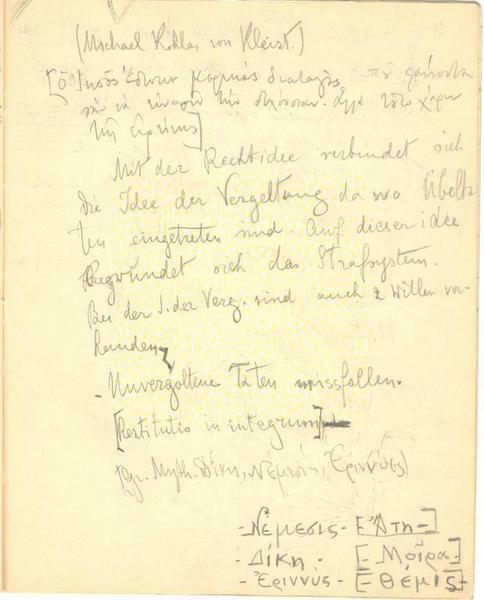 (Michael Kohlas von Kleist.)
[ὁ Ἰησοῦς ἔδωκεν μερικὰς διαταγὰς
τῆς εἰρήνης]
Mit der Rechtidee verbindet sich
die Idee der Vergeltung da wo Übelta-
ten eingetreten sind. Auf dieser idee
Begründet sich das Strafsystem.
Bei der I. der Verg. sind auch 2 Willen vor-
handen,
- Unvergoltene Taten missfallen.
[Restitutio in integrum]
(gr. Myth. Δίκη, Νέμεσις, Ἐριννύς)
- Νέμεσις - [Ἄτη -]
- Δίκη - [- Μοῖρα]
- Ἐριννύς - [- Θέμις -]